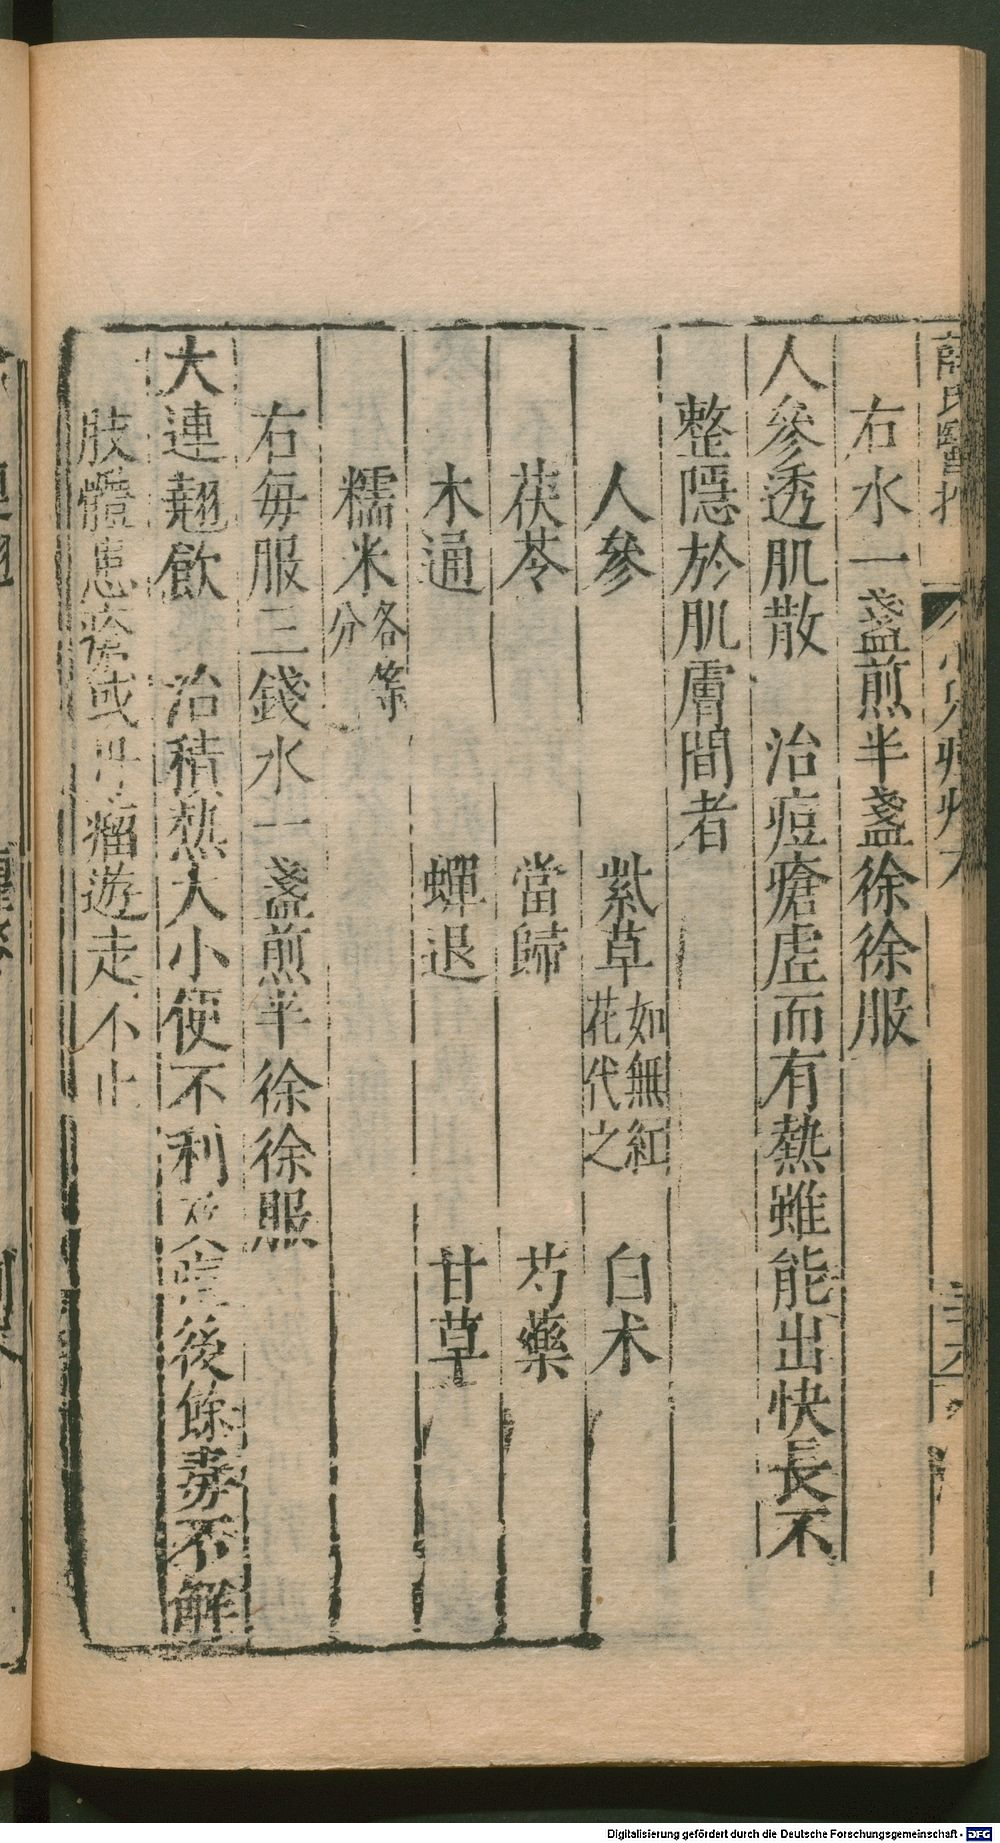 薛氏醫按
右水一盞煎半盞徐徐服
人參透肌散 治痘瘡虛而有熱雖能出快長不
整隱於肌膚間者
人參 紫草如無紅花代之 白术
茯苓 當歸 芍藥
木通 蟬退 甘草
糯米各等分
右每服三錢水一盞煎半徐徐服
大連翹飲 治積熱大小便不利及痘後餘毒不解
肢體患瘡或丹瘤遊走不止
Digitalisierung gefördert durch die Deutsche Forschungsgemeinschaft - DFG